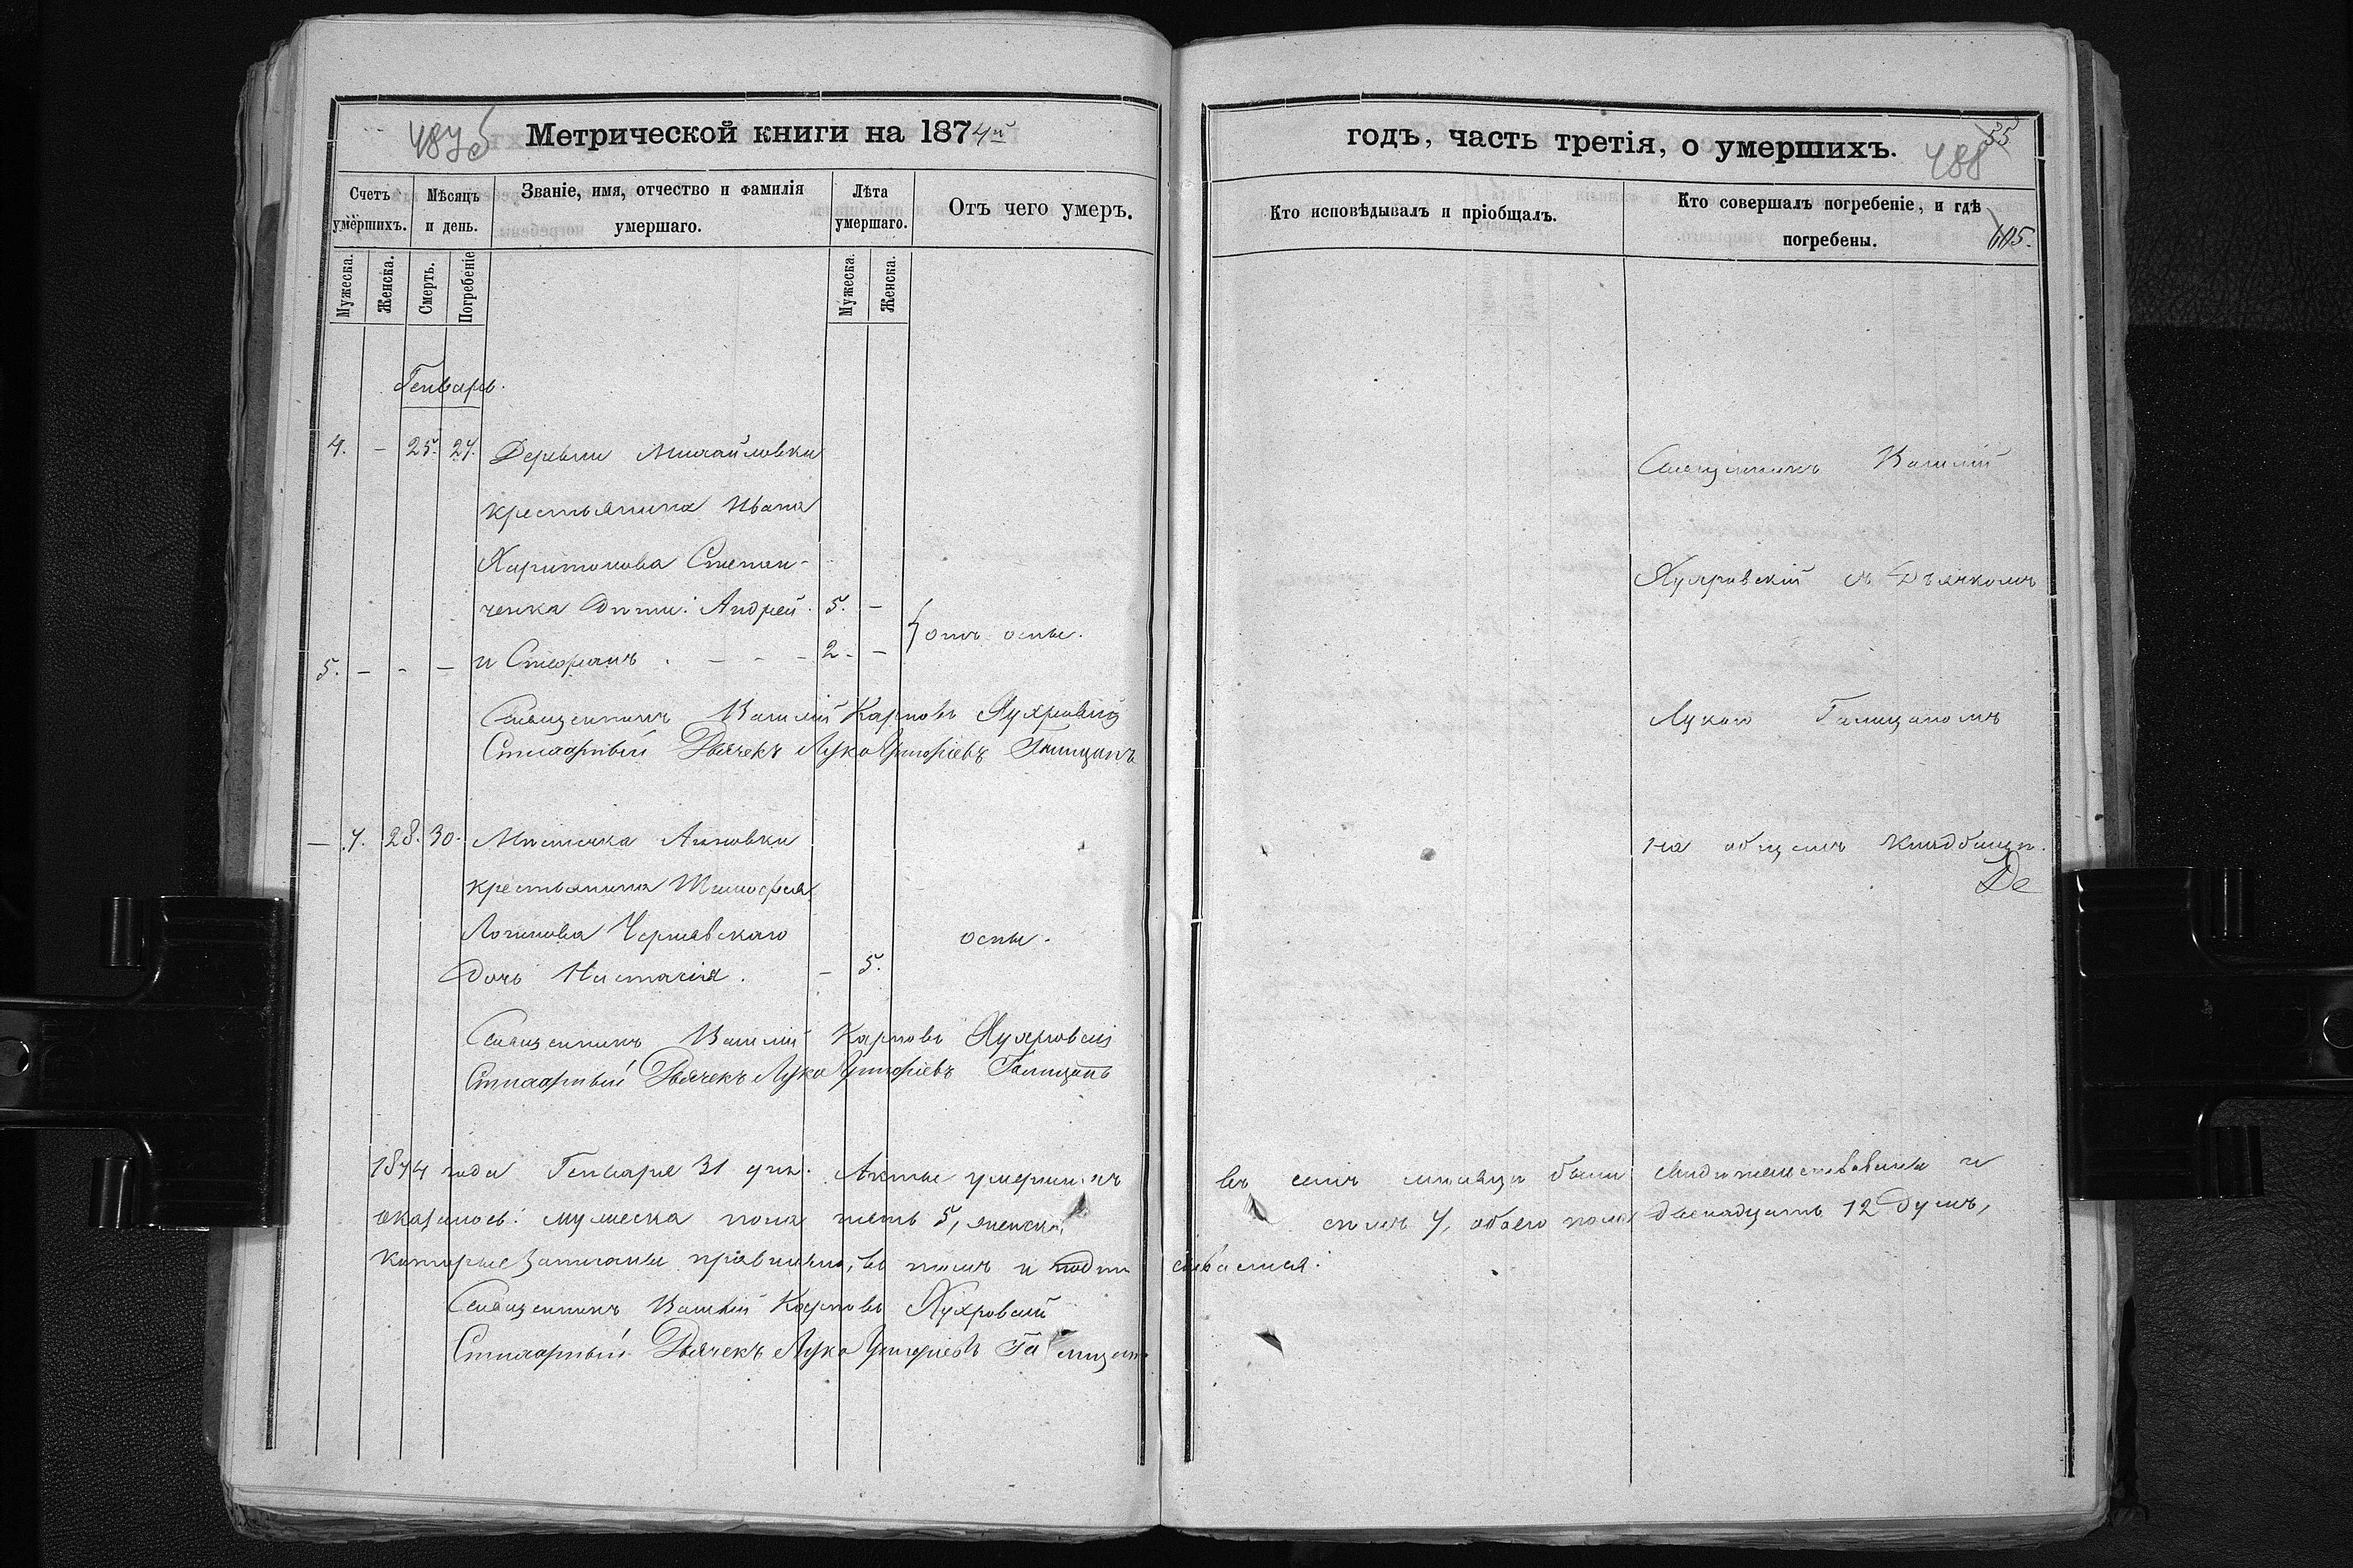 Метрической книги на 1874й
Счетъ умёршихъ.
Мѣсяцъ и день.
Званіе, имя, отчество и фамилія умершаго.
Лѣта умершаго.
Отъ чего умеръ.
Мужеска.
Женска.
Смерть.
Погребеніе
Мужеска.
Женска.
Генварь.
4. - 25. 27. Деревни Михайловки
крестьянина Ивана
Харитонова Степан-
ченка дѣти: Андрей. 5. -
5. - - - и Стефанъ . - - - 2 - - отъ оспы.
Священникъ Василій Карповъ
Стихарный Дьячекъ Лука Григоріевъ Галицанъ
- 7. 28. 30. Мѣстечка Анновки
крестьянина Тимофея
Логинова Чернявскаго оспы.
дочь Настасія. - 5.
Священникъ Василій Карповъ
Стихарный Дьячекъ Лука Григоріевъ Галицанъ
1874 года Генваря 31 дня. Акты умершихъ
оказалось: мужеска пола пять 5, женска,
которые записаны правильно, въ томъ и подпи
Священникъ Василій Карповъ
Стихарный Дьячекъ Лука Григоріевъ Галицанъ
годъ, часть третія, о умершихъ.
35
488
Кто исповѣдывалъ и пріобщалъ.
Кто совершалъ погребеніе, и гдѣ погребены.
Священникъ Василій
съ Дьячкомъ
Лукою Галицаномъ
на общемъ кладбищѣ.
въ семъ мѣсяцѣ были свидѣтельствованы и
семь 7, обоего пола двенадцать 12 душъ,
сываемся.